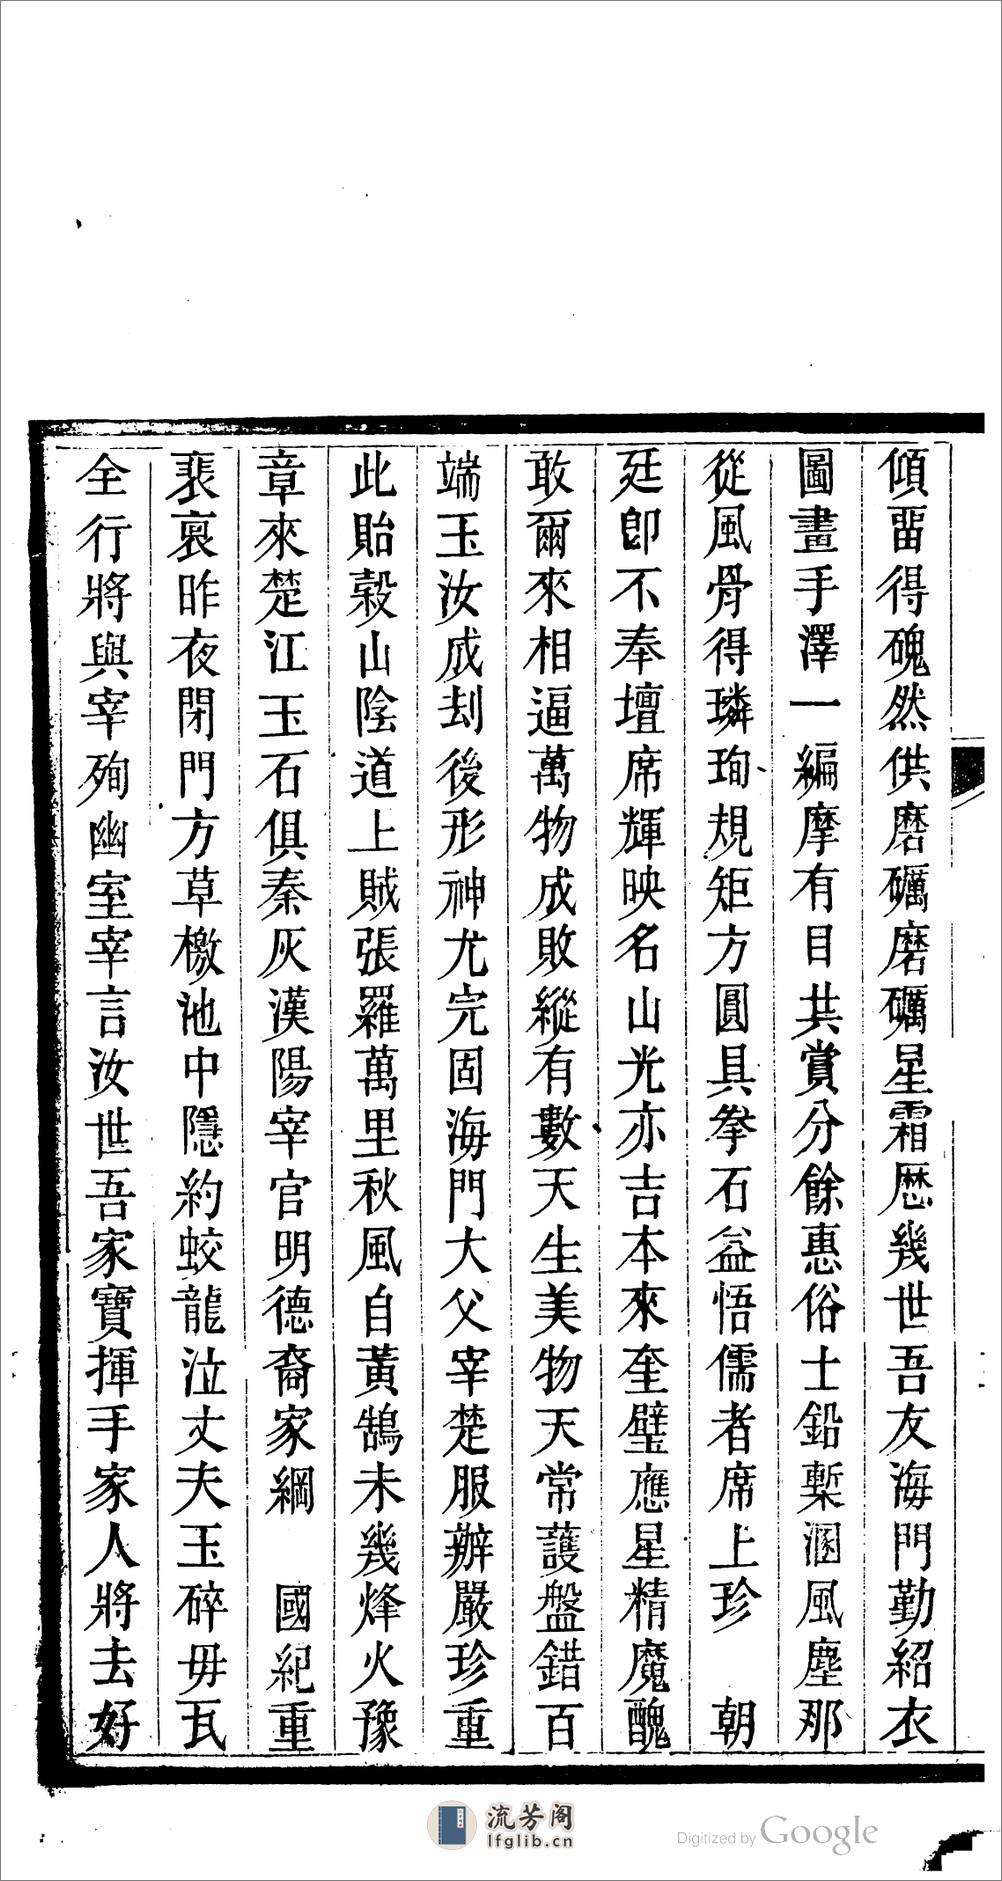 傾畱得磈然供磨礪磨礪星霜厯幾世吾友海門勤紹衣
圖畫手澤一編摩有目共賞分餘惠俗士鉛槧溷風塵那
從風骨得璘珣規矩方圓具拳石益悟儒者席上珍　朝
廷卽不奉壇席輝映名山光亦吉本來奎璧應星精魔醜
敢爾來相逼萬物成敗縱有數天生美物天常護盤錯百
端玉汝成刦後形神尤完固海門大父宰楚服辦嚴珍重
此貽穀山陰道上賊張羅萬里秋風自黃鵠未幾烽火豫
章來楚江玉石俱秦灰漢陽宰官明德裔家綱　國紀重
裴裒昨夜閉門方草檄池中隱約蛟龍泣丈夫玉碎毋瓦
全行將與宰殉幽室宰言汝世吾家寶揮手家人將去好
流芳阁
lfglib.cn
Digitized by Google